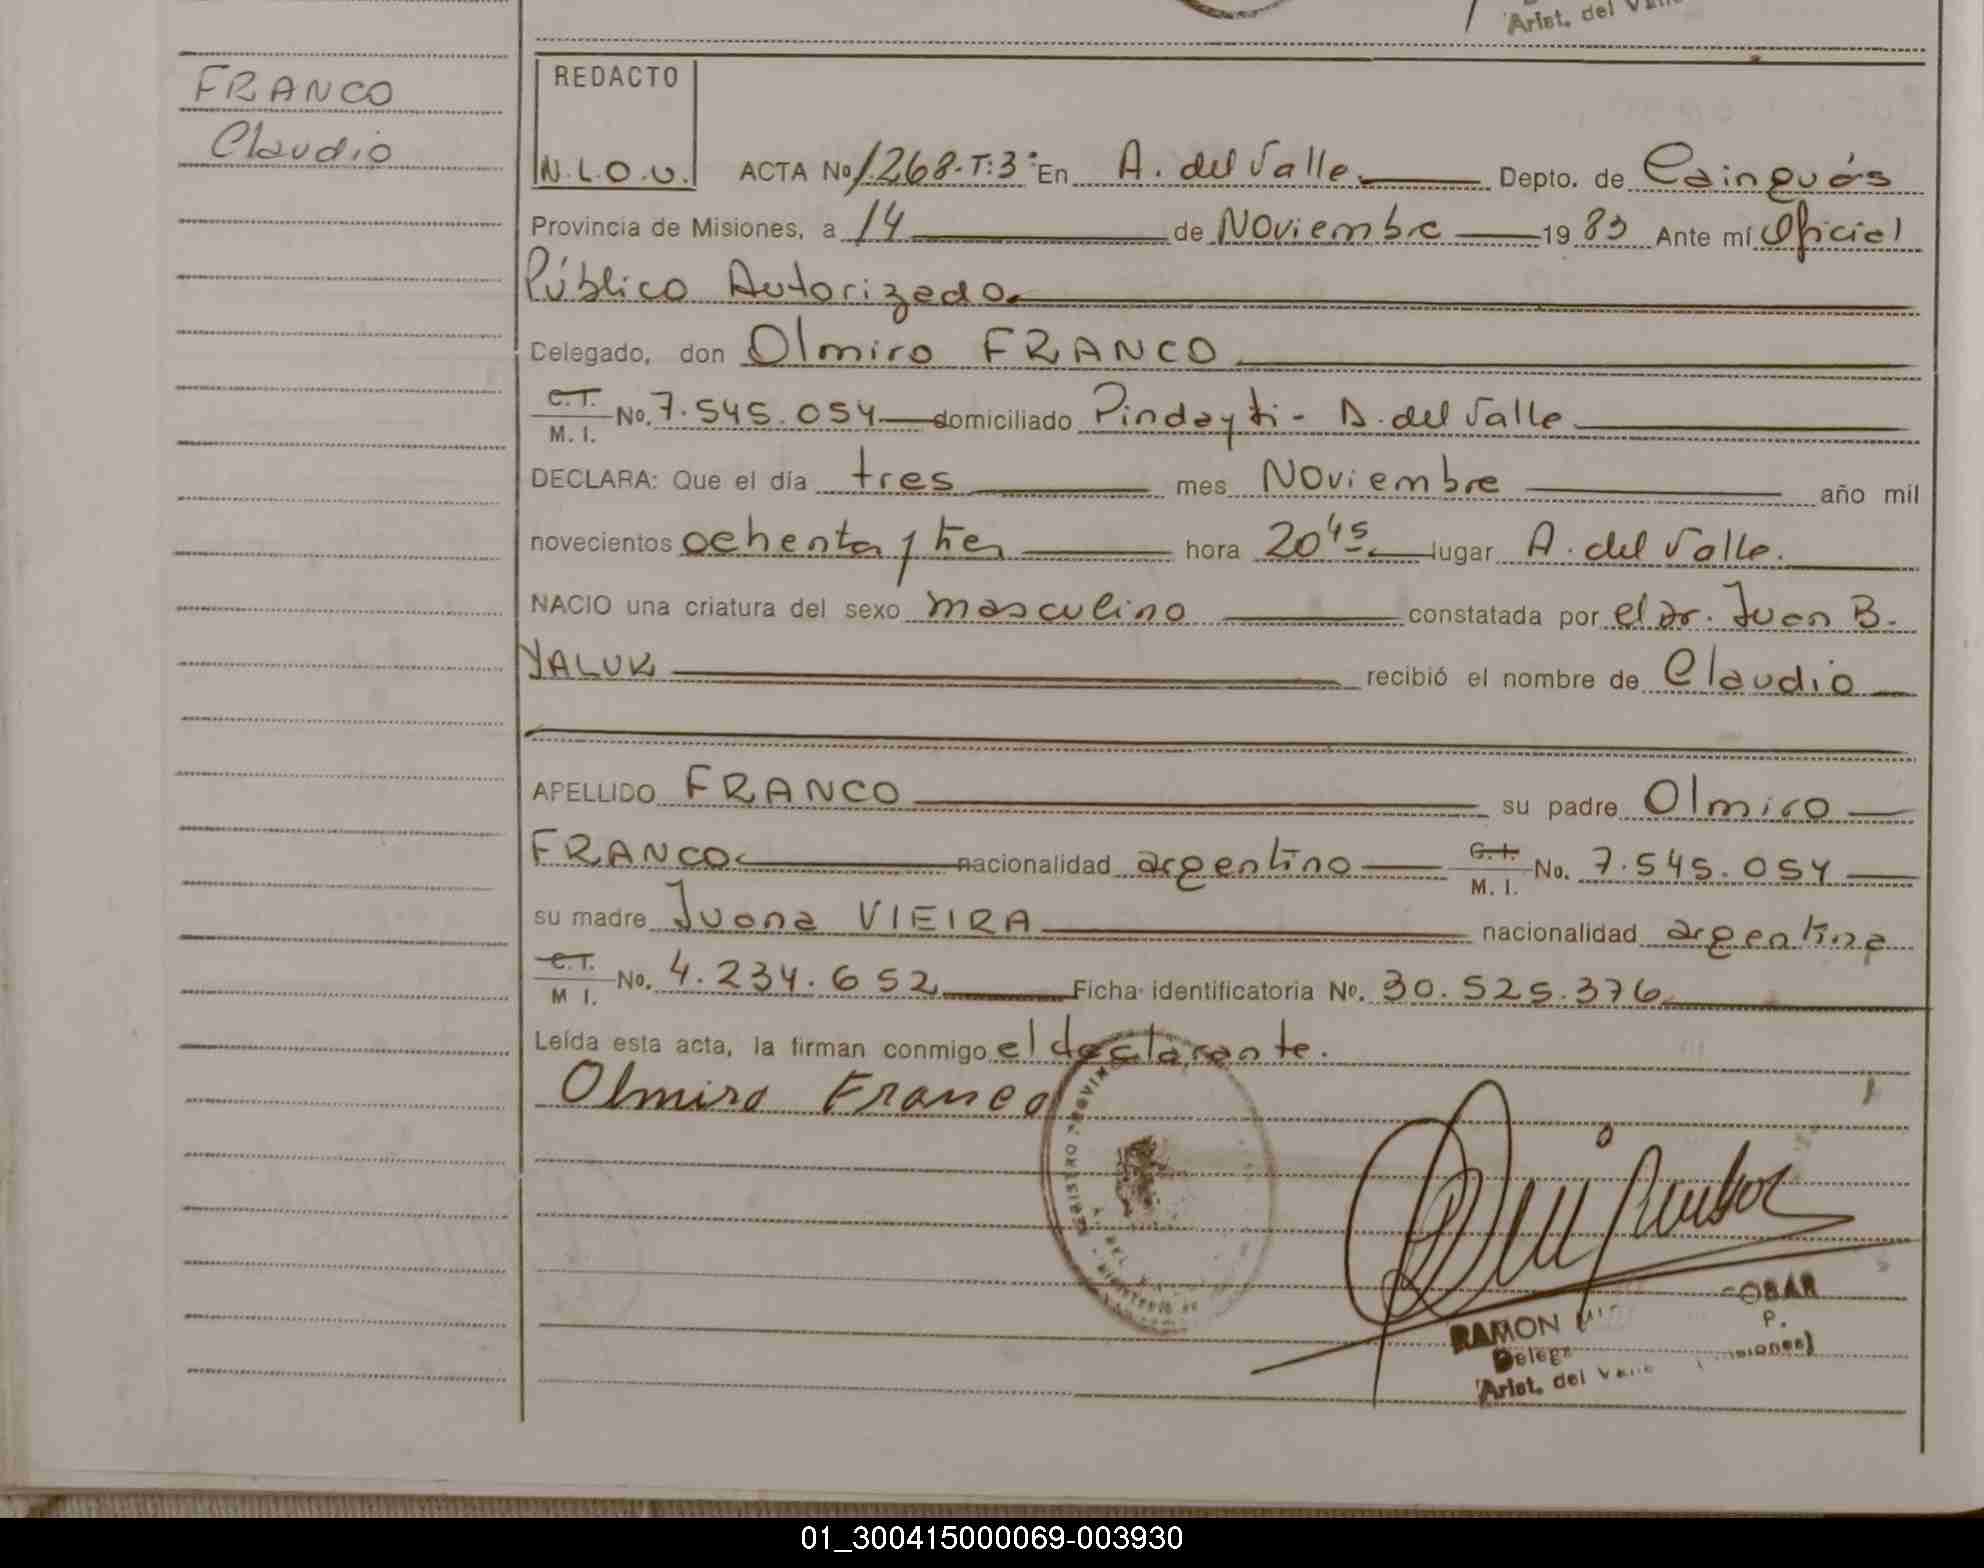 Arist. del Valle
FRANCO
Claudio
REDACTO
N.L.O.V. ACTA No 1.268-T:3° En A. del Valle Depto. de Cainguás
Provincia de Misiones, a 14 de Noviembre 19 83 Ante mí Oficial
Público Autorizado.
Delegado, don Olmiro FRANCO
C.I. M. I. No. 7.545.054 domiciliado Pindayti - A. del Valle
DECLARA: Que el día tres mes Noviembre año mil
novecientos ochenta y tres hora 20 45 lugar A. del Valle.
NACIO una criatura del sexo masculino constatada por el Dr. Juan B.
YALUK recibió el nombre de Claudio
APELLIDO FRANCO su padre Olmiro
FRANCO nacionalidad argentino C.I. M. I. No. 7.545.054
su madre Juana VIEIRA nacionalidad argentina
C.I. M I. No. 4.234.652 Ficha identificatoria No. 30.525.376
Leída esta acta, la firman conmigo el declarante.
Olmiro Franco
REGISTRO PROVIN
RAMON OBAR
Deleg P.
Arist. del Valle (Misiones)
01_300415000069-003930